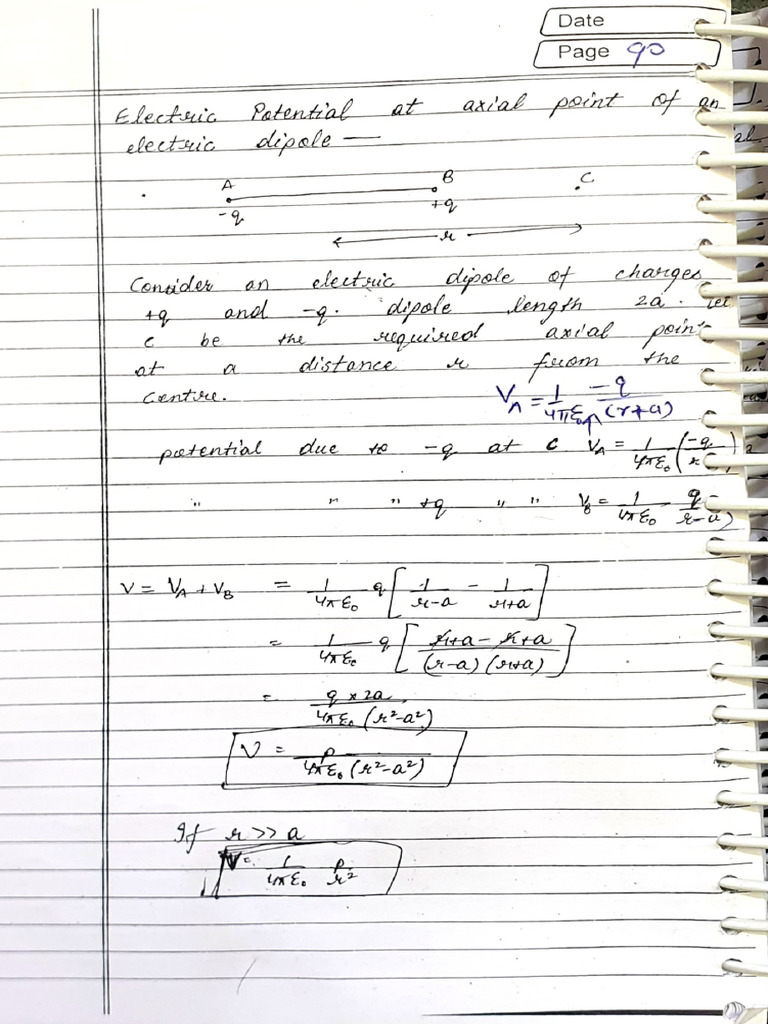 Date
Page 90
Electric Potential at axial point of an
electric dipole —
A B C
-q +q
r
Consider an electric dipole of charges
+q and -q. dipole length 2a. Let
C be the required axial point
at a distance r from the
Centre.
V_A = 1/4πε₀ -q/(r+a)
potential due to -q at C V_A = 1/4πε₀ (-q/r
" " " +q " " V_B = 1/4πε₀ q/r-a)
V = V_A + V_B = 1/4πε₀ q [1/r-a - 1/r+a]
= 1/4πε₀ q [r+a - r+a/(r-a)(r+a)]
= q × 2a/4πε₀ (r²-a²)
V = p/4πε₀ (r²-a²)
If r >> a
V = 1/4πε₀ p/r²